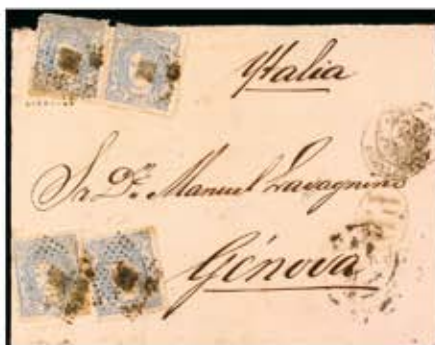 Ytalia
Sr. Dn. Manuel Lavagnino
Génova